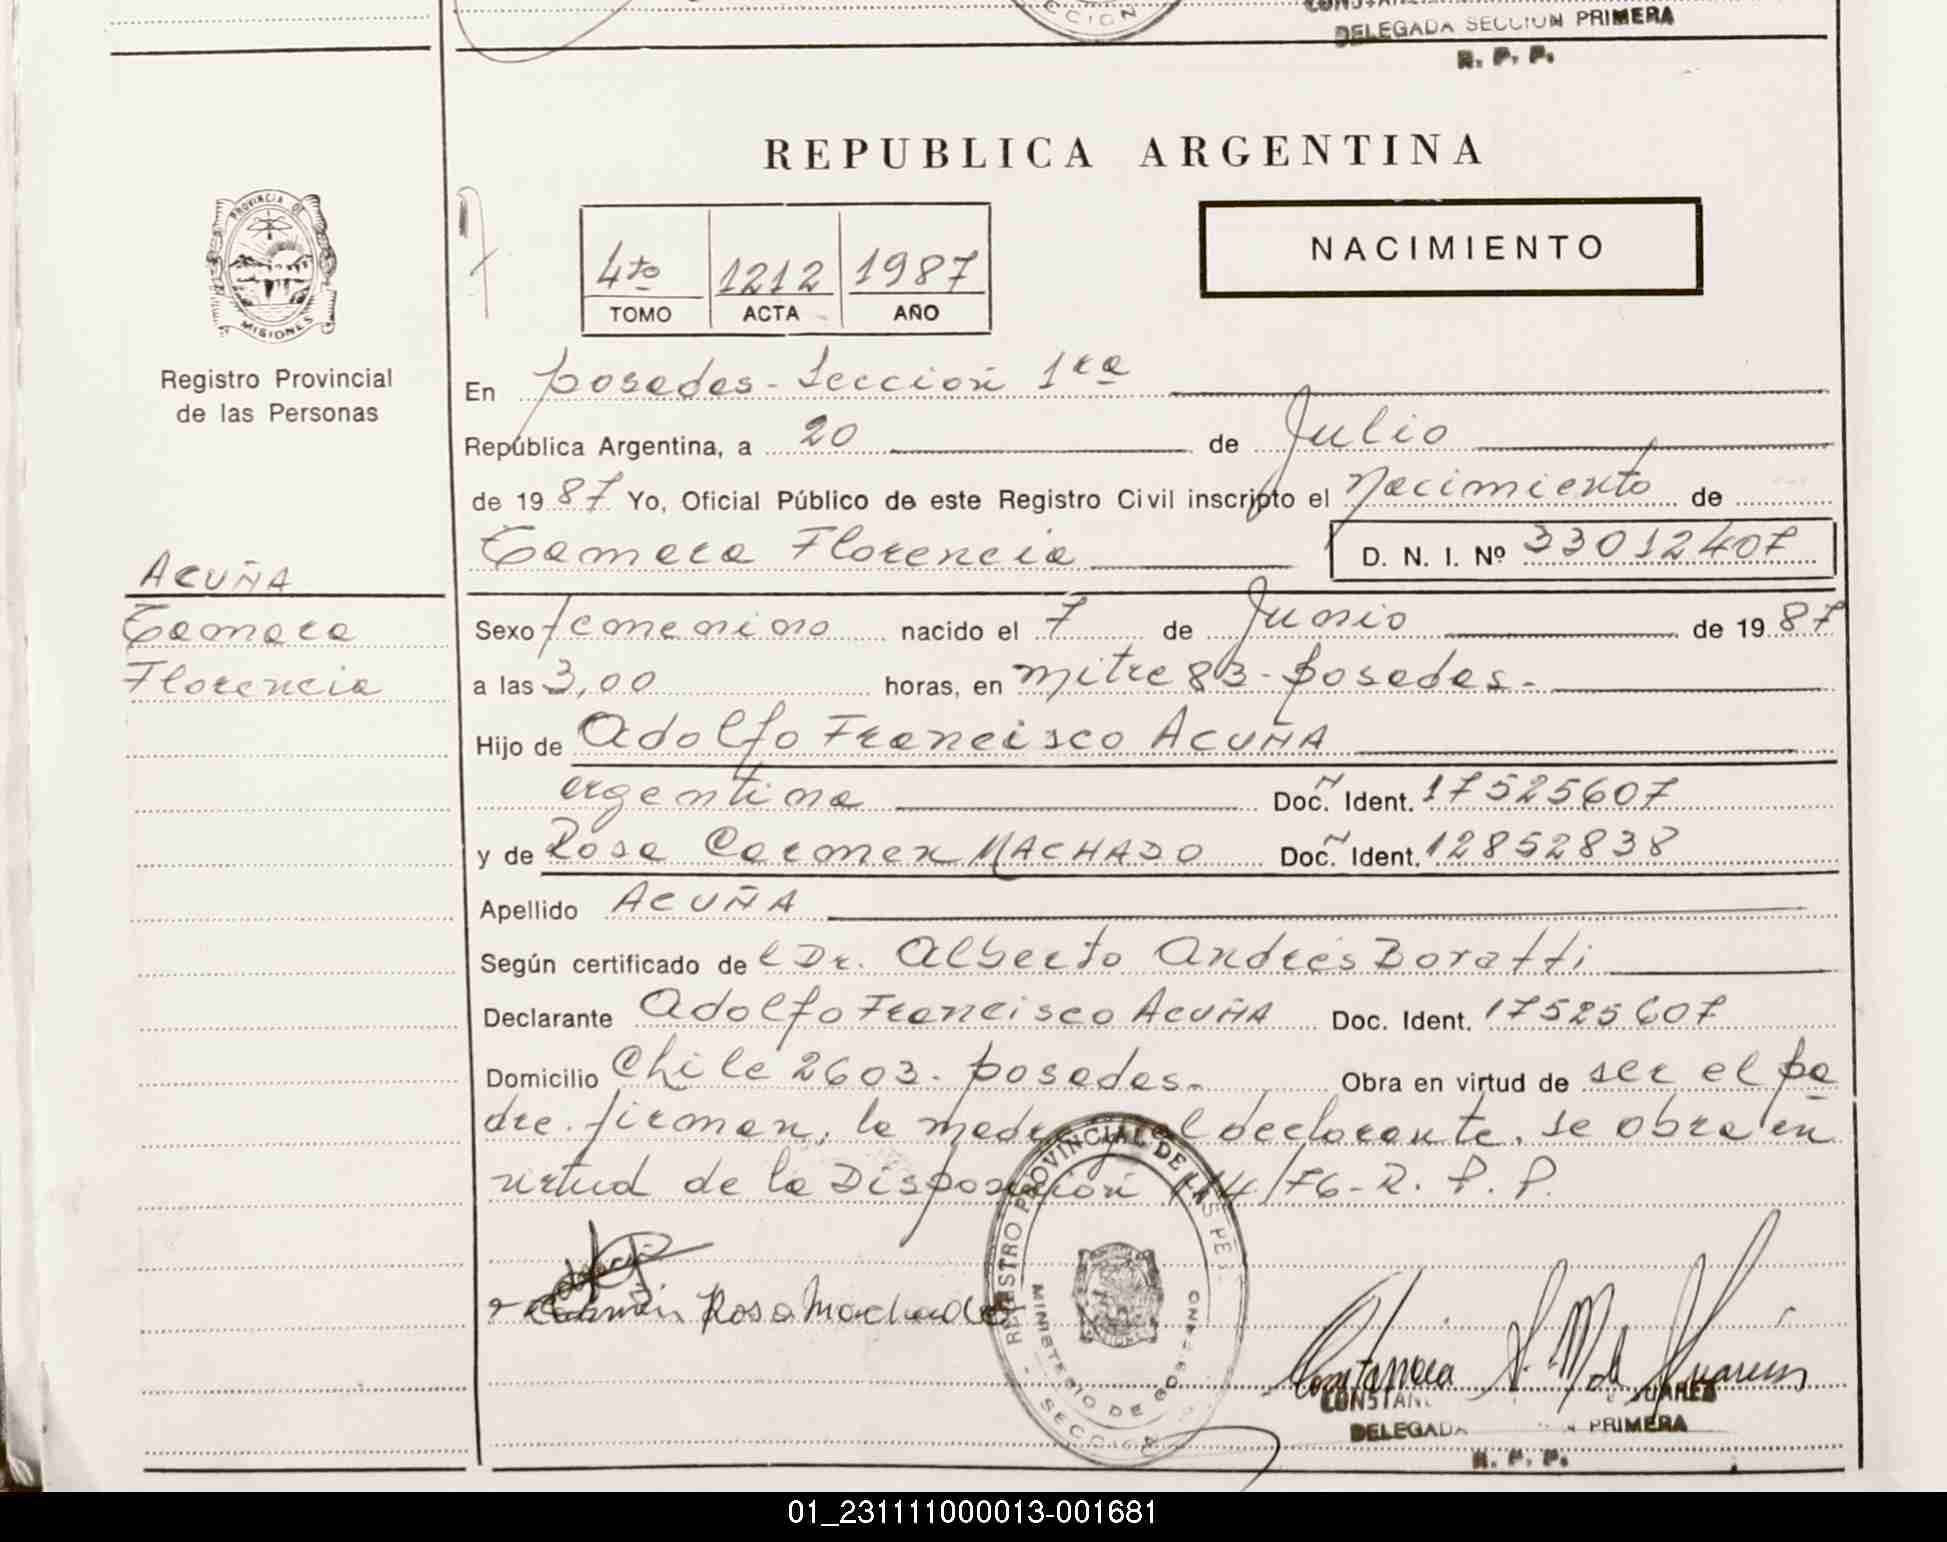 DELEGADA SECCION PRIMERA
R. P. P.
REPUBLICA ARGENTINA
PROVINCIA DE
MISIONES
Registro Provincial
de las Personas
4to 1212 1987
TOMO ACTA AÑO
NACIMIENTO
En Posadas - Sección 1ra
República Argentina, a 20 de Julio
de 1987 Yo, Oficial Público de este Registro Civil inscripto el Nacimiento de
Tamara Florencia D. N. I. Nº 33012407
ACUÑA
Tamara
Florencia
Sexo femenino nacido el 7 de Junio de 1987
a las 3,00 horas, en Mitre 83 - Posadas -
Hijo de Adolfo Francisco ACUÑA
argentina Doc. Ident. 17525607
y de Rosa Carmen MACHADO Doc. Ident. 12852838
Apellido ACUÑA
Según certificado del Dr. Alberto Andrés Boratti
Declarante Adolfo Francisco ACUÑA Doc. Ident. 17525607
Domicilio Chile 2603 - Posadas - Obra en virtud de ser el pa
dre. firman, la madre el declarante. se obra en
virtud de la Disposición 114/76 - R. P. P.
REGISTRO PROVINCIAL DE LAS PE
MINISTERIO DE GOBIERNO
SECCION
Carmen Rosa Machado
JUAREZ
DELEGADA PRIMERA
R. P. P.
01_231111000013-001681